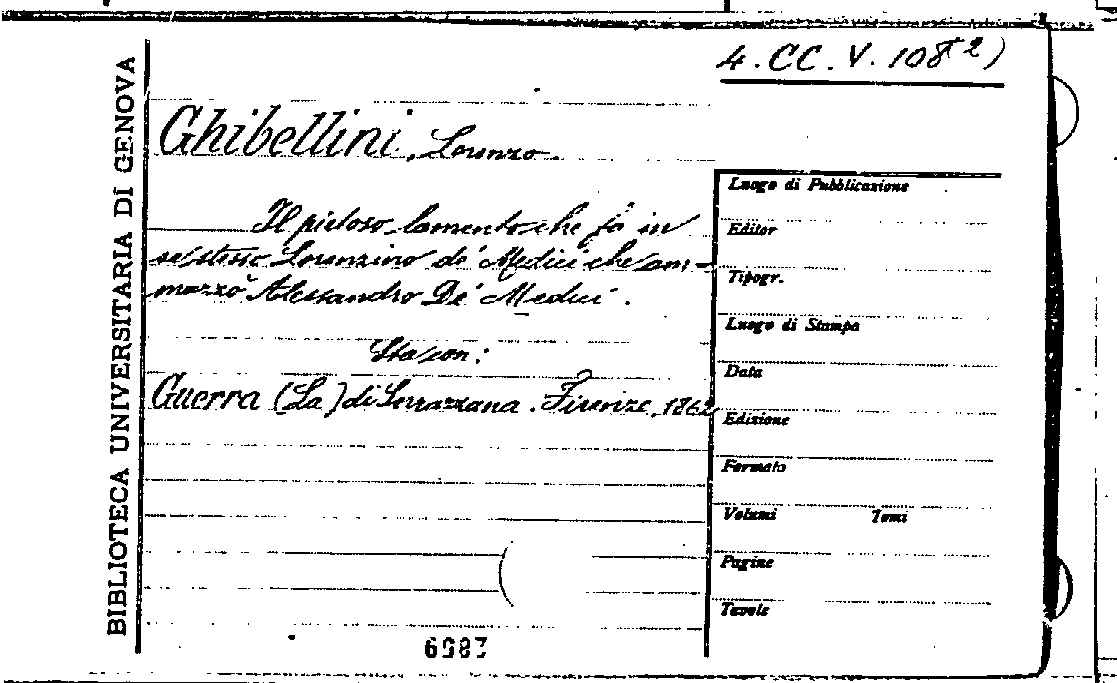 BIBLIOTECA UNIVERSITARIA DI GENOVA
4. CC. V. 108 2)
Ghibellini, Lorenzo.
Il pietoso lamento che fa in
se stesso Lorenzino de' Medici che am-
mazzò Alessandro De' Medici.
Sta con:
Guerra (La) di Serrazzana. Firenze, 1862
Luogo di Pubblicazione
Editor
Tipogr.
Luogo di Stampa
Data
Edizione
Formato
Volumi Tomi
Pagine
Tavole